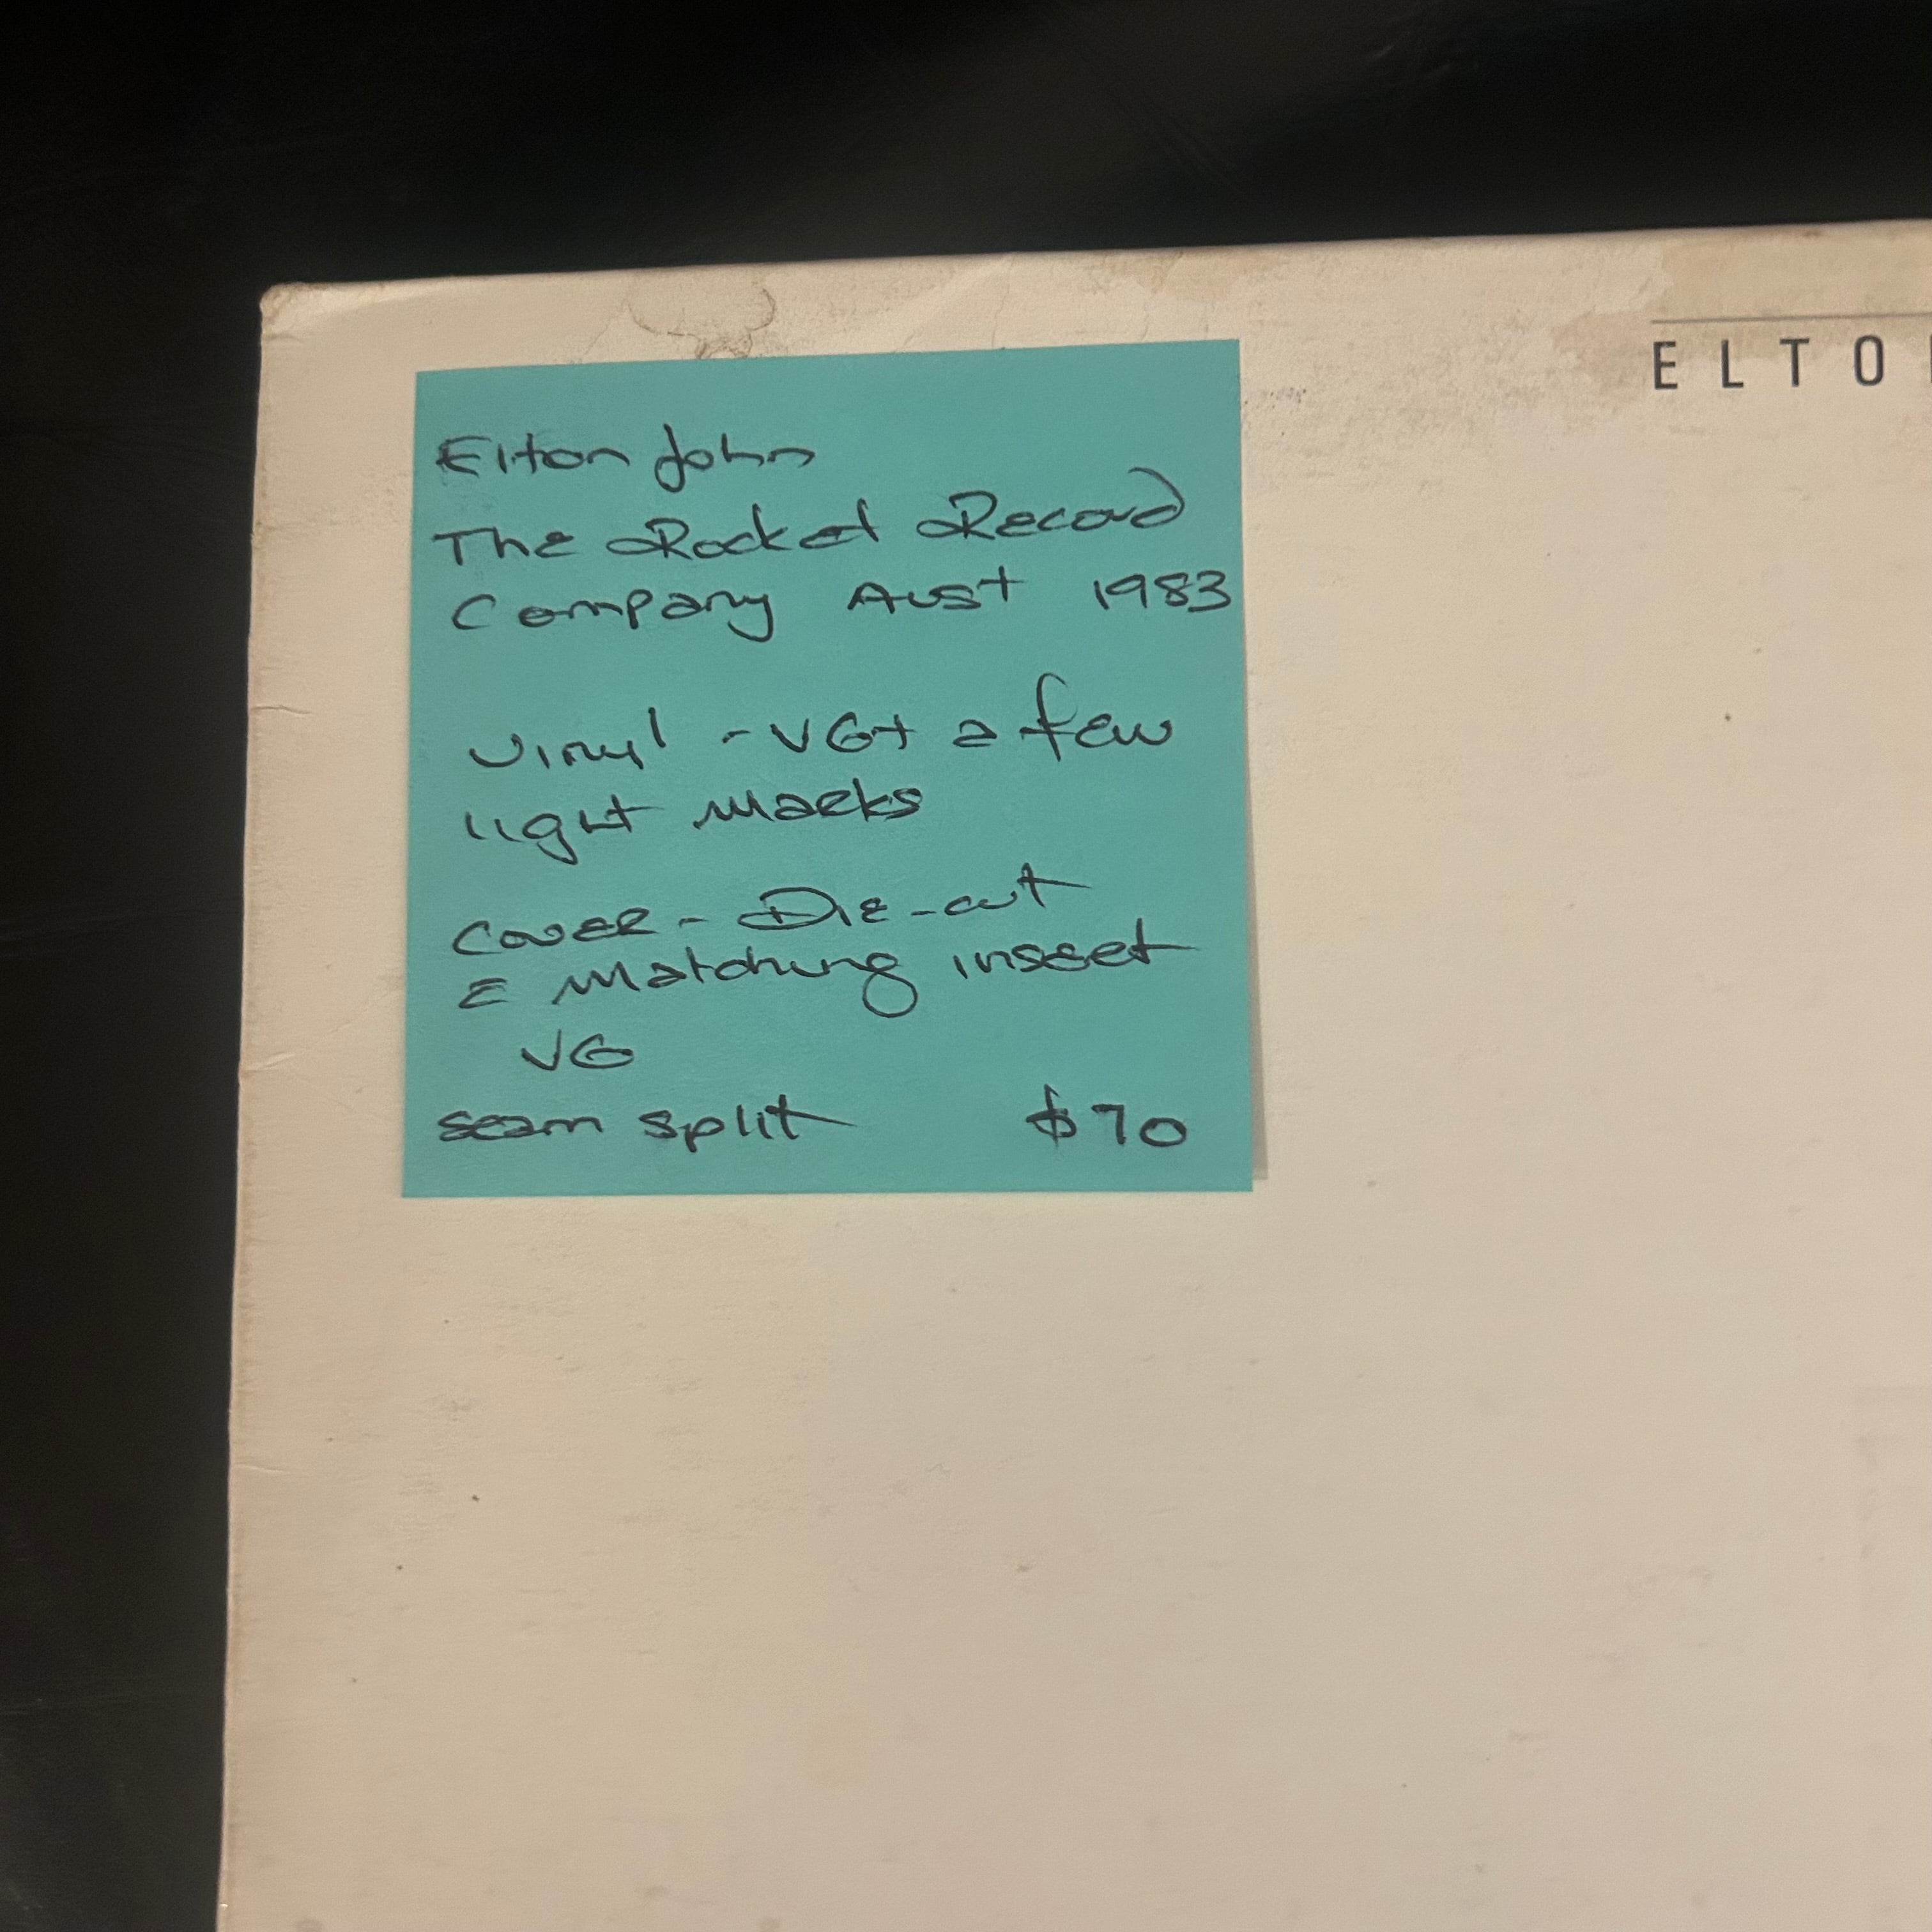 Elton John
The Rocket Record
Company Aust 1983
Vinyl - VG+ a few
light marks
Cover - Die-cut
& Matching insert
VG
seam split $70
ELTO